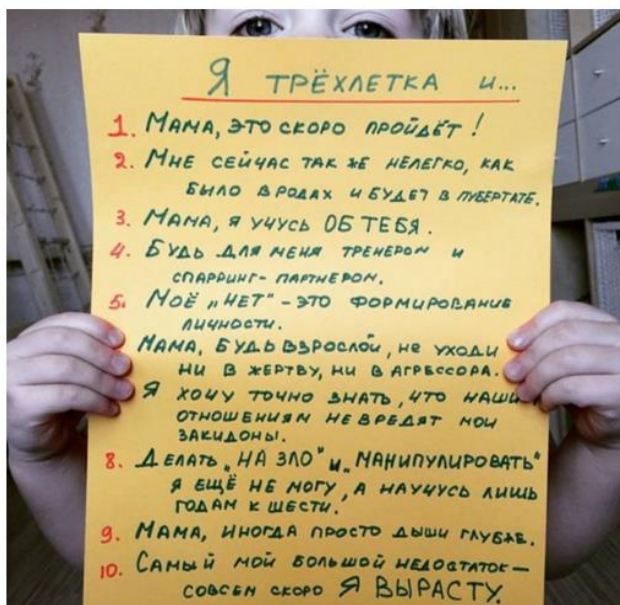 Я ТРЁХЛЕТКА И...
1. МАМА, ЭТО СКОРО ПРОЙДЁТ!
2. МНЕ СЕЙЧАС ТАК ЖЕ НЕЛЕГКО, КАК
БЫЛО В РОДАХ И БУДЕТ В ПУБЕРТАТЕ.
3. МАМА, Я УЧУСЬ ОБ ТЕБЯ.
4. БУДЬ ДЛЯ МЕНЯ ТРЕНЕРОМ И
СПАРРИНГ-ПАРТНЕРОМ.
5. МОЁ „НЕТ" - ЭТО ФОРМИРОВАНИЕ
ЛИЧНОСТИ.
МАМА, БУДЬ ВЗРОСЛОЙ, НЕ УХОДИ
НИ В ЖЕРТВУ, НИ В АГРЕССОРА.
Я ХОЧУ ТОЧНО ЗНАТЬ, ЧТО НАШИМ
ОТНОШЕНИЯМ НЕ ВРЕДЯТ МОИ
ЗАКИДОНЫ.
8. ДЕЛАТЬ „НА ЗЛО" и „МАНИПУЛИРОВАТЬ"
Я ЕЩЁ НЕ МОГУ, А НАУЧУСЬ ЛИШЬ
ГОДАМ К ШЕСТИ.
9. МАМА, ИНОГДА ПРОСТО ДЫШИ ГЛУБЖЕ.
10. САМЫЙ МОЙ БОЛЬШОЙ НЕДОСТАТОК-
СОВСЕМ СКОРО Я ВЫРАСТУ.